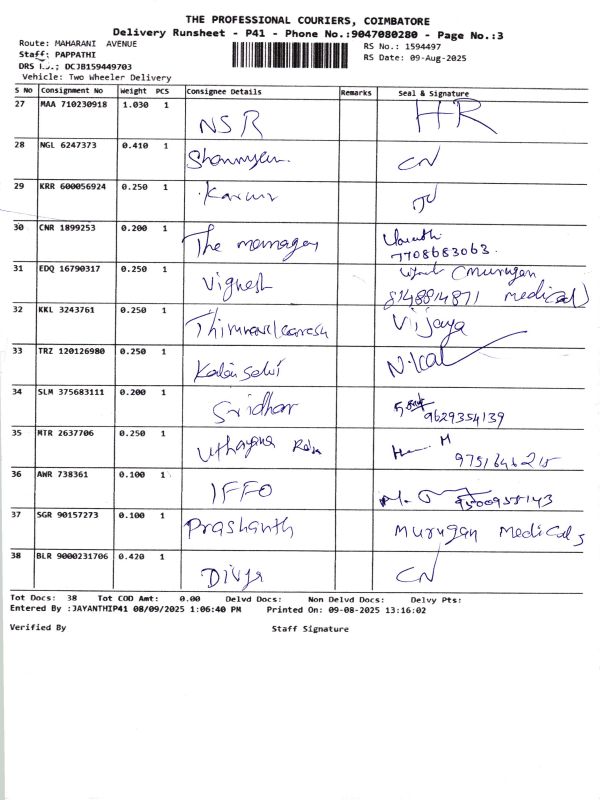 THE PROFESSIONAL COURIERS, COIMBATORE
Delivery Runsheet - P41 - Phone No.:9047080280 - Page No.:3
Route: MAHARANI AVENUE RS No.: 1594497
Staff: PAPPATHI RS Date: 09-Aug-2025
DRS No.: DCJB159449703
Vehicle: Two Wheeler Delivery
S No Consignment No Weight PCS Consignee Details Remarks Seal & Signature
27 MAA 710230918 1.030 1 NSR HR
28 NGL 6247373 0.410 1 CN
29 KRR 600056924 0.250 1
30 CNR 1899253 0.200 1 The manager
7708683063.
31 EDQ 16790317 0.250 1 Vignesh (Murugan
8148814871 medical)
32 KKL 3243761 0.250 1 Vijaya
33 TRZ 120126980 0.250 1 Kalai Selvi N.Kal
34 SLM 375683111 0.200 1 Sridhar
9629354139
35 MTR 2637706 0.250 1
9751646215
36 AWR 738361 0.100 1 IFFO 9500955143
37 SGR 90157273 0.100 1 Prashanth Murugan Medicals
38 BLR 9000231706 0.420 1 Divya CN
Tot Docs: 38 Tot COD Amt: 0.00 Delvd Docs: Non Delvd Docs: Delvy Pts:
Entered By :JAYANTHIP41 08/09/2025 1:06:40 PM Printed On: 09-08-2025 13:16:02
Verified By Staff Signature